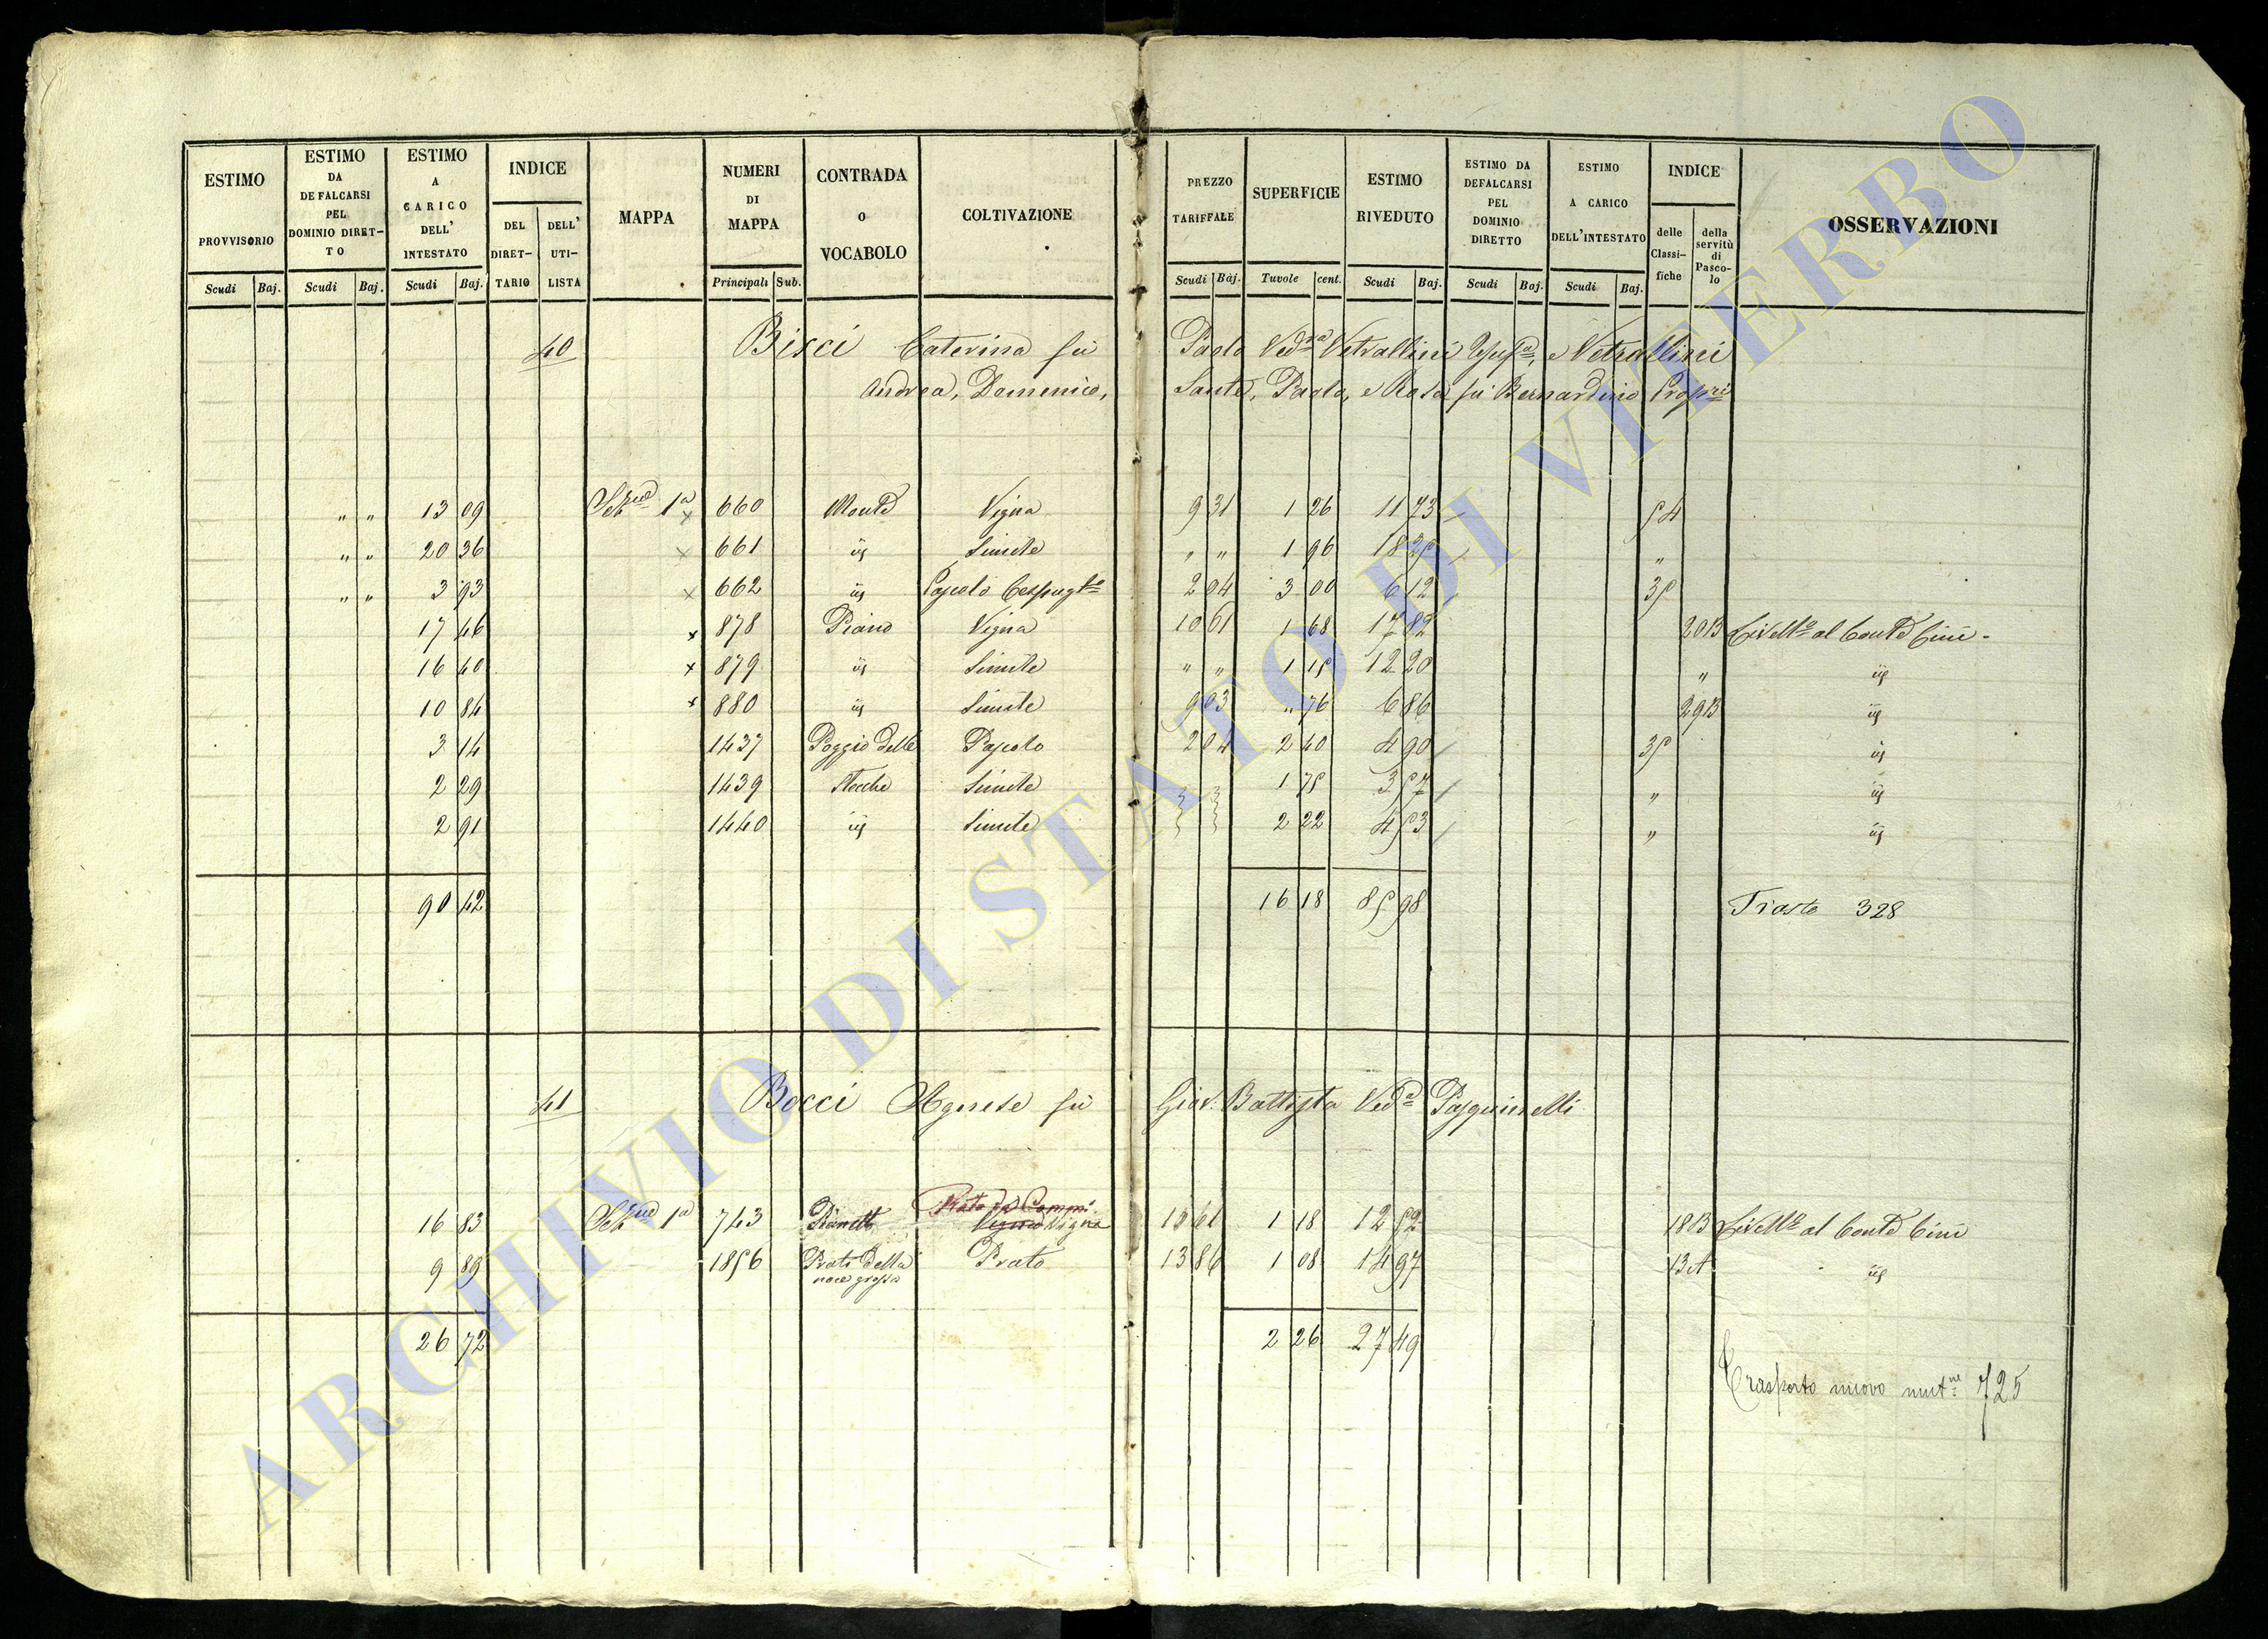 ESTIMO PROVVISORIO Scudi Baj.
ESTIMO DA DEFALCARSI PEL DOMINIO DIRET-TO Scudi Baj.
ESTIMO A CARICO DELL' INTESTATO Scudi Baj.
INDICE DEL DIRET-TARIO DELL' UTI-LISTA
MAPPA
NUMERI DI MAPPA Principali Sub.
CONTRADA o VOCABOLO
COLTIVAZIONE
PREZZO TARIFFALE Scudi Baj.
SUPERFICIE Tavole cent.
ESTIMO RIVEDUTO Scudi Baj.
ESTIMO DA DEFALCARSI PEL DOMINIO DIRETTO Scudi Baj.
ESTIMO A CARICO DELL'INTESTATO Scudi Baj.
INDICE delle Classi-fiche della servitù di Pasco-lo
OSSERVAZIONI
40 Bisci Caterina fu Paolo Ved.a Vetrallini e Vetrallini
Andrea, Domenico, Sante, Paolo, e Rosa fu Bernardino Propri
" " 13 09 1a x 660 Monte Vigna 9 31 1 26 11 73 54
" " 20 36 x 661 id Simile " " 1 96 18 25 "
" " 3 93 x 662 id Pascolo Cespugto 2 04 3 00 6 12 35
17 46 x 878 Piano Vigna 10 61 1 68 17 82 20B Livello al Conte Cini
16 40 x 879 id Simile " " 1 15 12 20 " id
10 84 x 880 id Simile 9 03 " 76 6 86 29B id
3 14 1437 Poggio delle Pascolo 2 04 2 40 4 90 35 id
2 29 1439 Stecche Simile 1 75 3 57 " id
2 91 1440 id Simile 2 22 4 53 " id
90 42 16 18 85 98 328
41 Bocci Agnese fu Giov. Battista Ved.a Pasquinelli
Prato
16 83 1a 743 Vigna Vigna 10 61 1 18 12 52 18B Livello al Conte Cini
9 89 1856 Prati della noce grossa Prato 13 86 1 08 14 97 13A id
26 72 2 26 27 49
Trasporto nuovo 725
ARCHIVIO DI STATO DI VITERBO